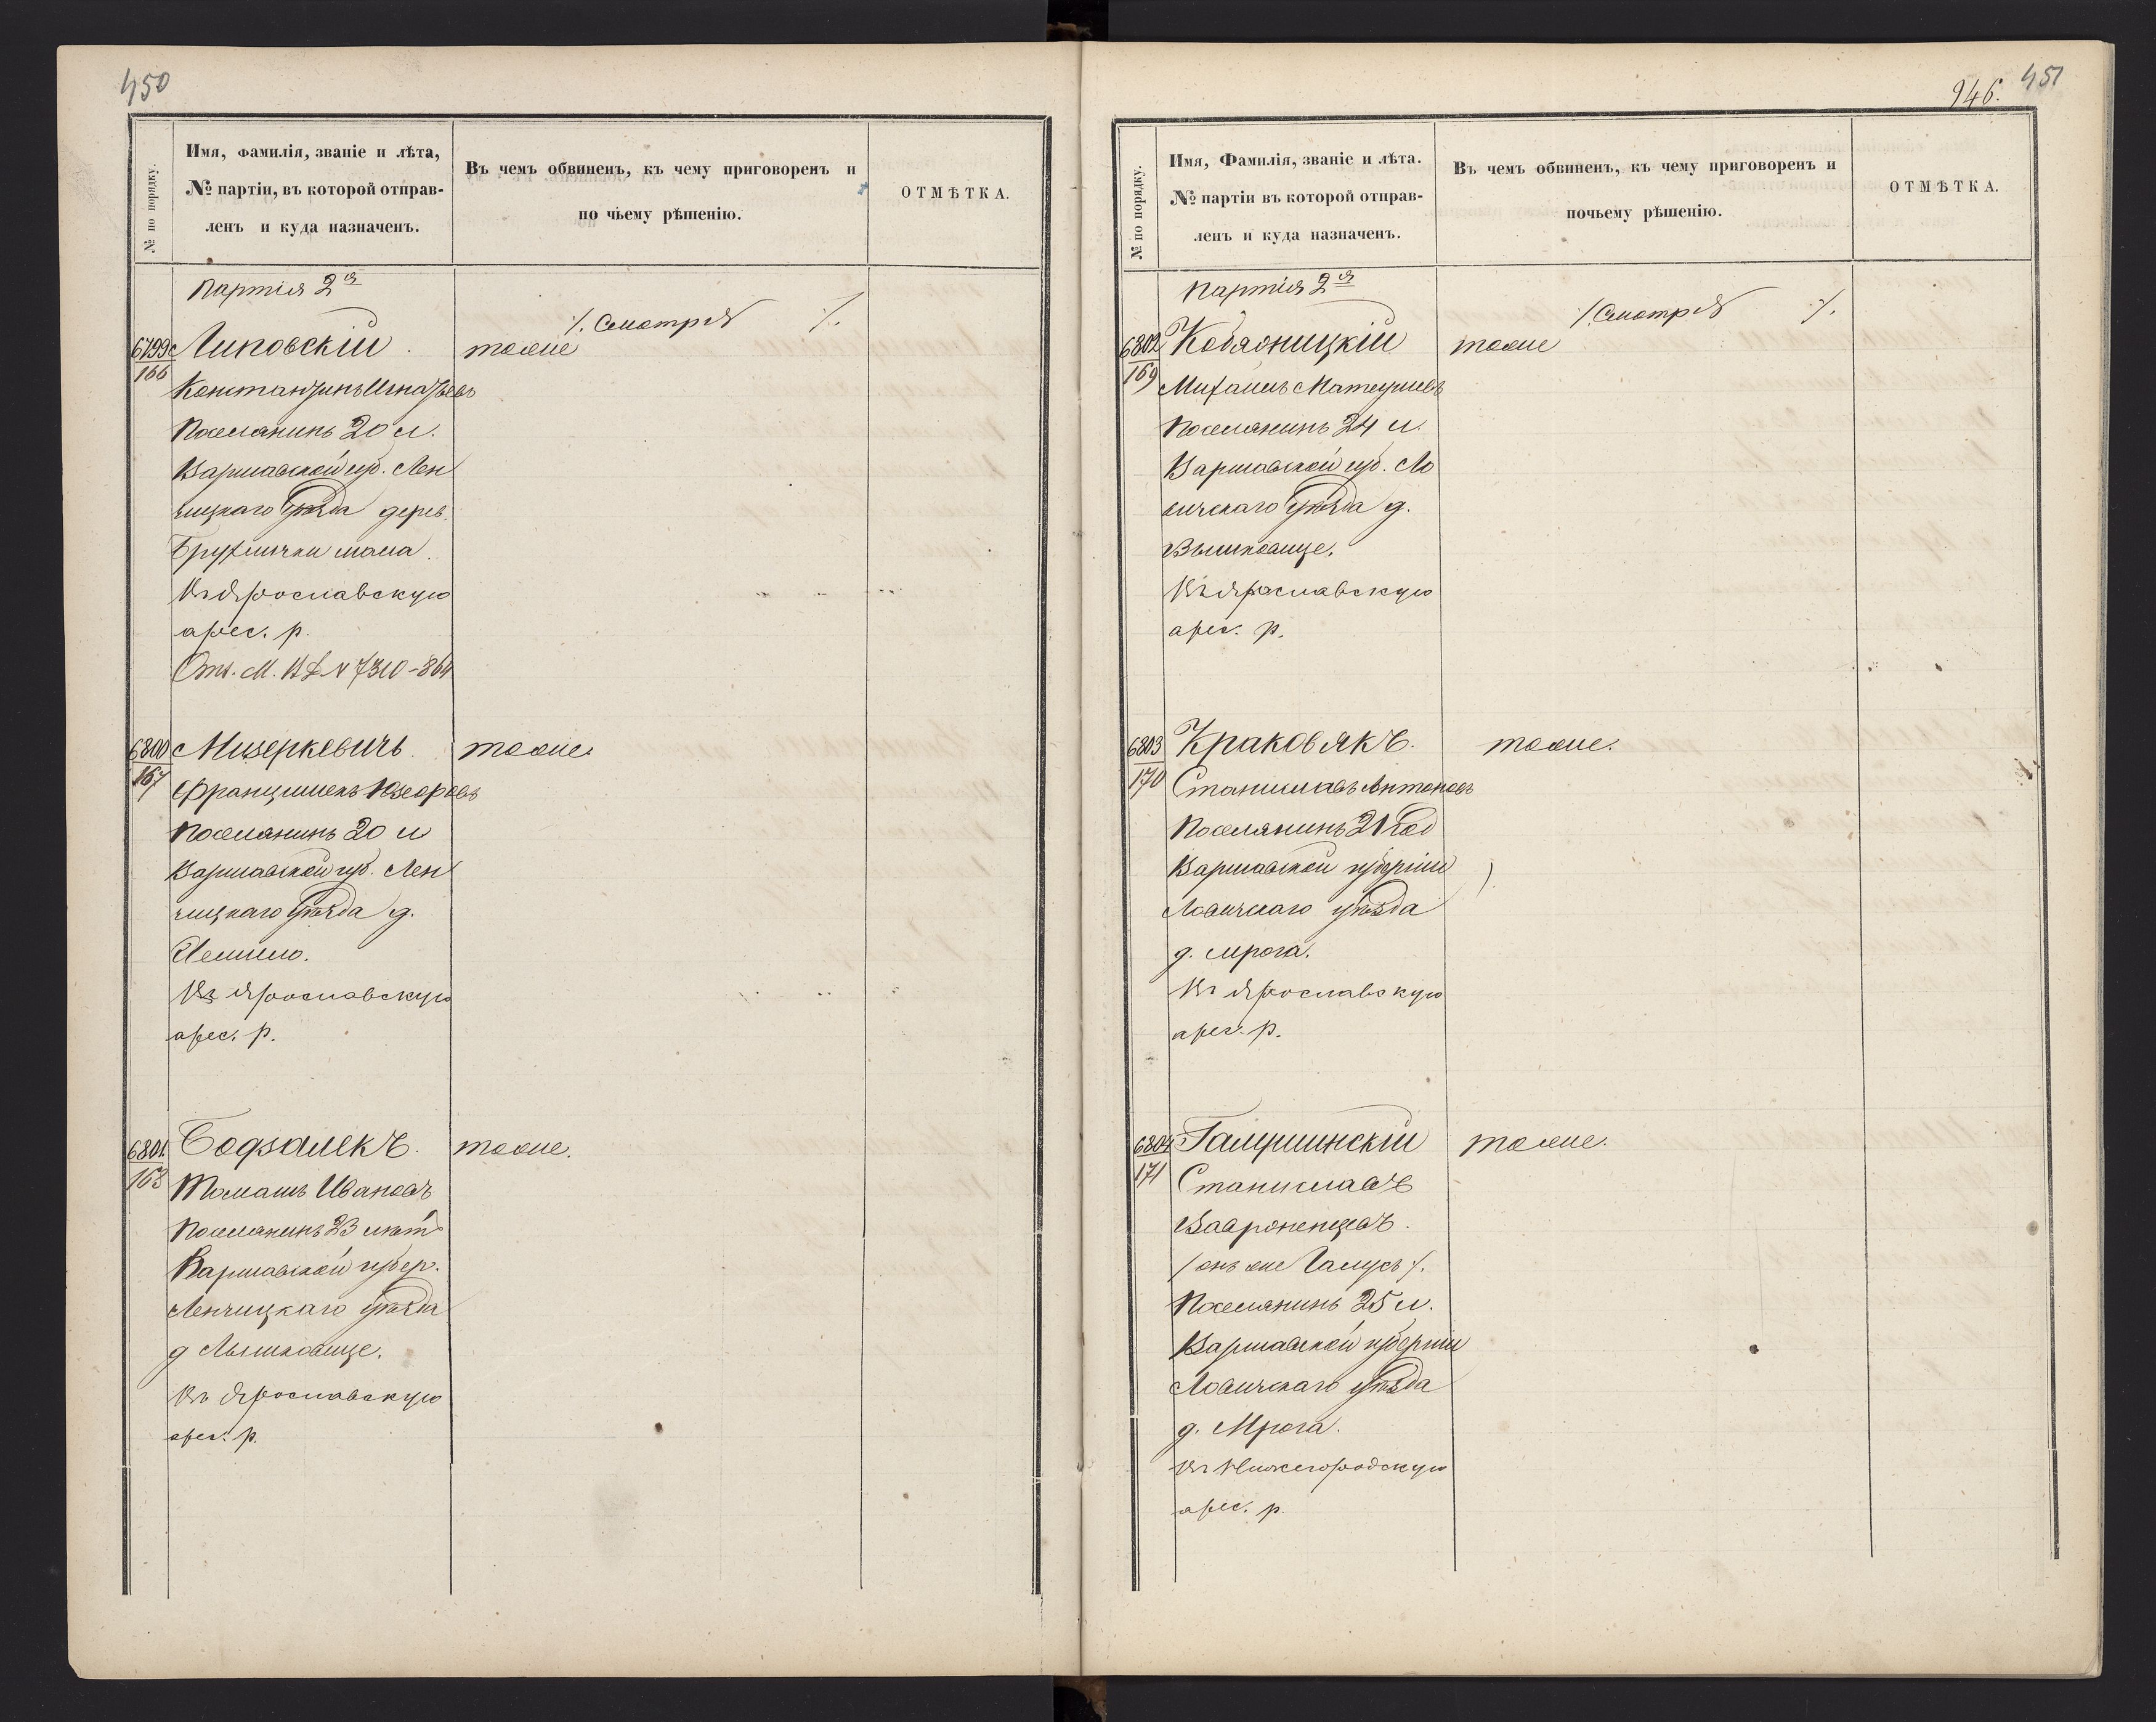 450
№ по порядку.
Имя, Фамилія, званіе и лѣта,
№ партіи, въ которой отправ-
ленъ и куда назначенъ.
Въ чемъ обвиненъ, къ чему приговоренъ и
по чьему рѣшенію.
ОТМѢТКА.
Партія 2я
/. Смотрѣ /.
6799
166
Липовскій. тоже
Константинъ Игнатьевъ
Поселянинъ 20 л.
Варшавской губ. Лен
чицкаго уѣзда дерев.
мала.
Въ Ярославскую
арес. р.
От. М. В Д N 7310-864
6800
167
Мизеркевичъ. тоже
Францишекъ
Поселянинъ 20 л
Варшавской губ. Лен
чицкаго уѣзда д.
Въ Ярославскую
арес. р.
6801.
168
Бодзалекъ. тоже.
Томашъ Ивановъ
Поселянинъ 23 лѣтъ
Варшавской губер.
Ленчицкаго уѣзда
д Лышковице.
Въ Ярославскую
арес. р.
946. 451
№ по порядку.
Имя, Фамилія, званіе и лѣта.
№ партіи въ которой отправ-
ленъ и куда назначенъ.
Въ чемъ обвиненъ, къ чему приговоренъ и
почьему рѣшенію.
ОТМѢТКА.
Партія 2я
/ Смотрѣ /.
6802
169
тоже
Михаилъ Матеушевъ
Поселянинъ 24 л.
Варшавской губ. Ло
вичскаго уѣзда д.
Въ Ярославскую
арес. р.
6803
170
Краковякъ. тоже.
Станиславъ Антоновъ
Поселянинъ 21 год
Варшавской губерніи
Ловичскаго уѣзда
д. мрога.
Въ Ярославскую
арес. р.
6804
171
Галушинскій тоже.
Станиславъ
Вавроненцевъ.
/ онъ же Галусъ /.
Поселянинъ 25 л.
Варшавской губерніи
Ловичскаго уѣзда
д. Мрога.
Въ Нижегородскую
арес. р.